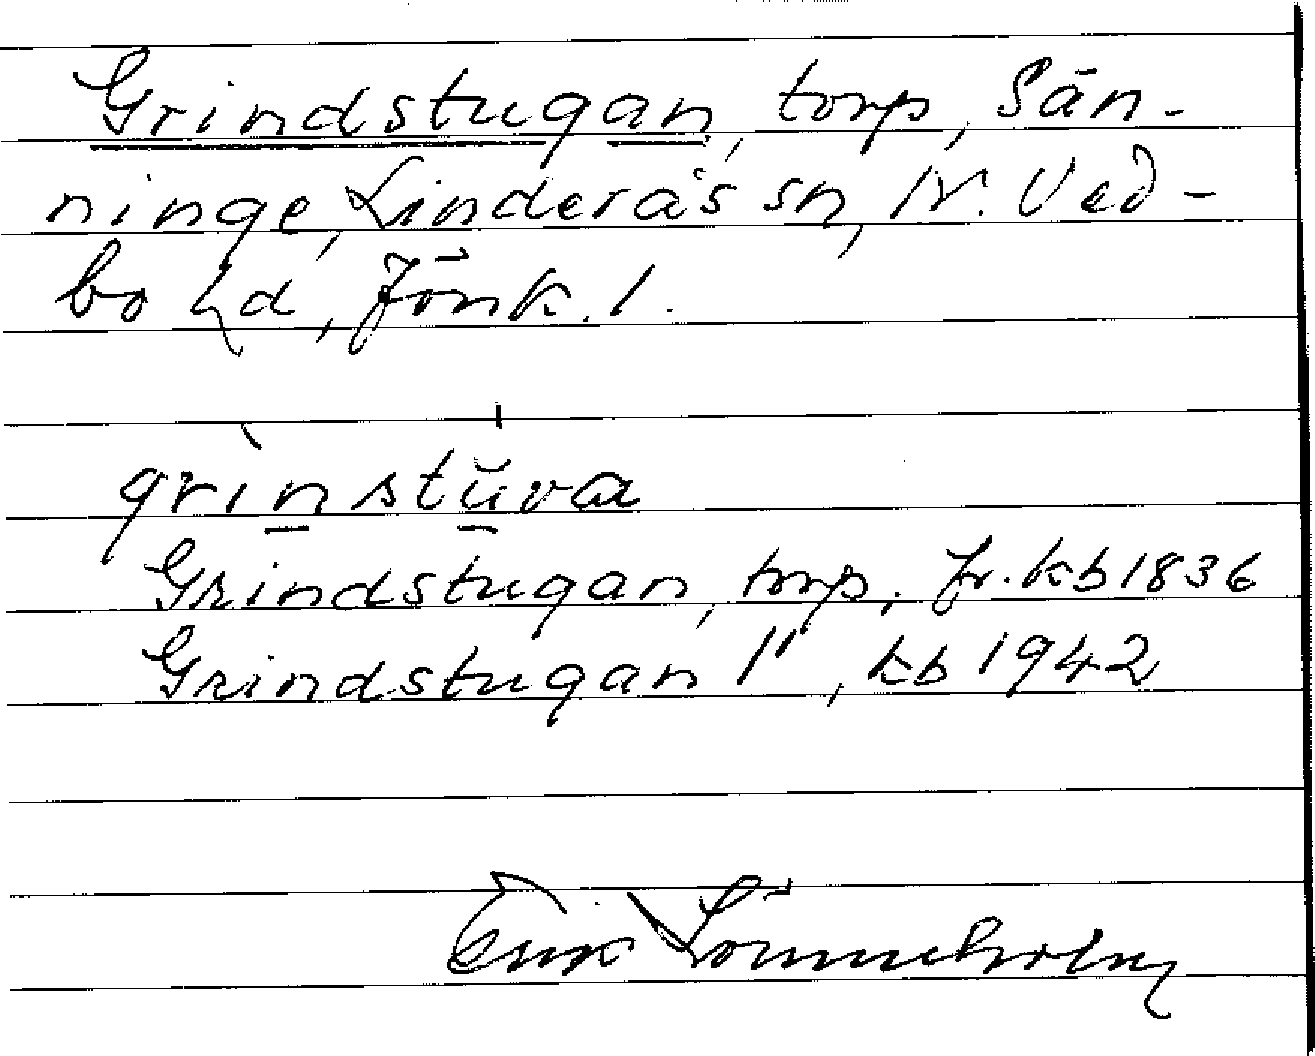 Grindstugan, torp, Sän-
ninge, Linderås sn, N. Ved-
bo hd, Jönk. l.
grìnstŭva
Grindstugan, torp, fr. kb 1836
Grindstugan 1", kb 1942
Erik Lönneholm